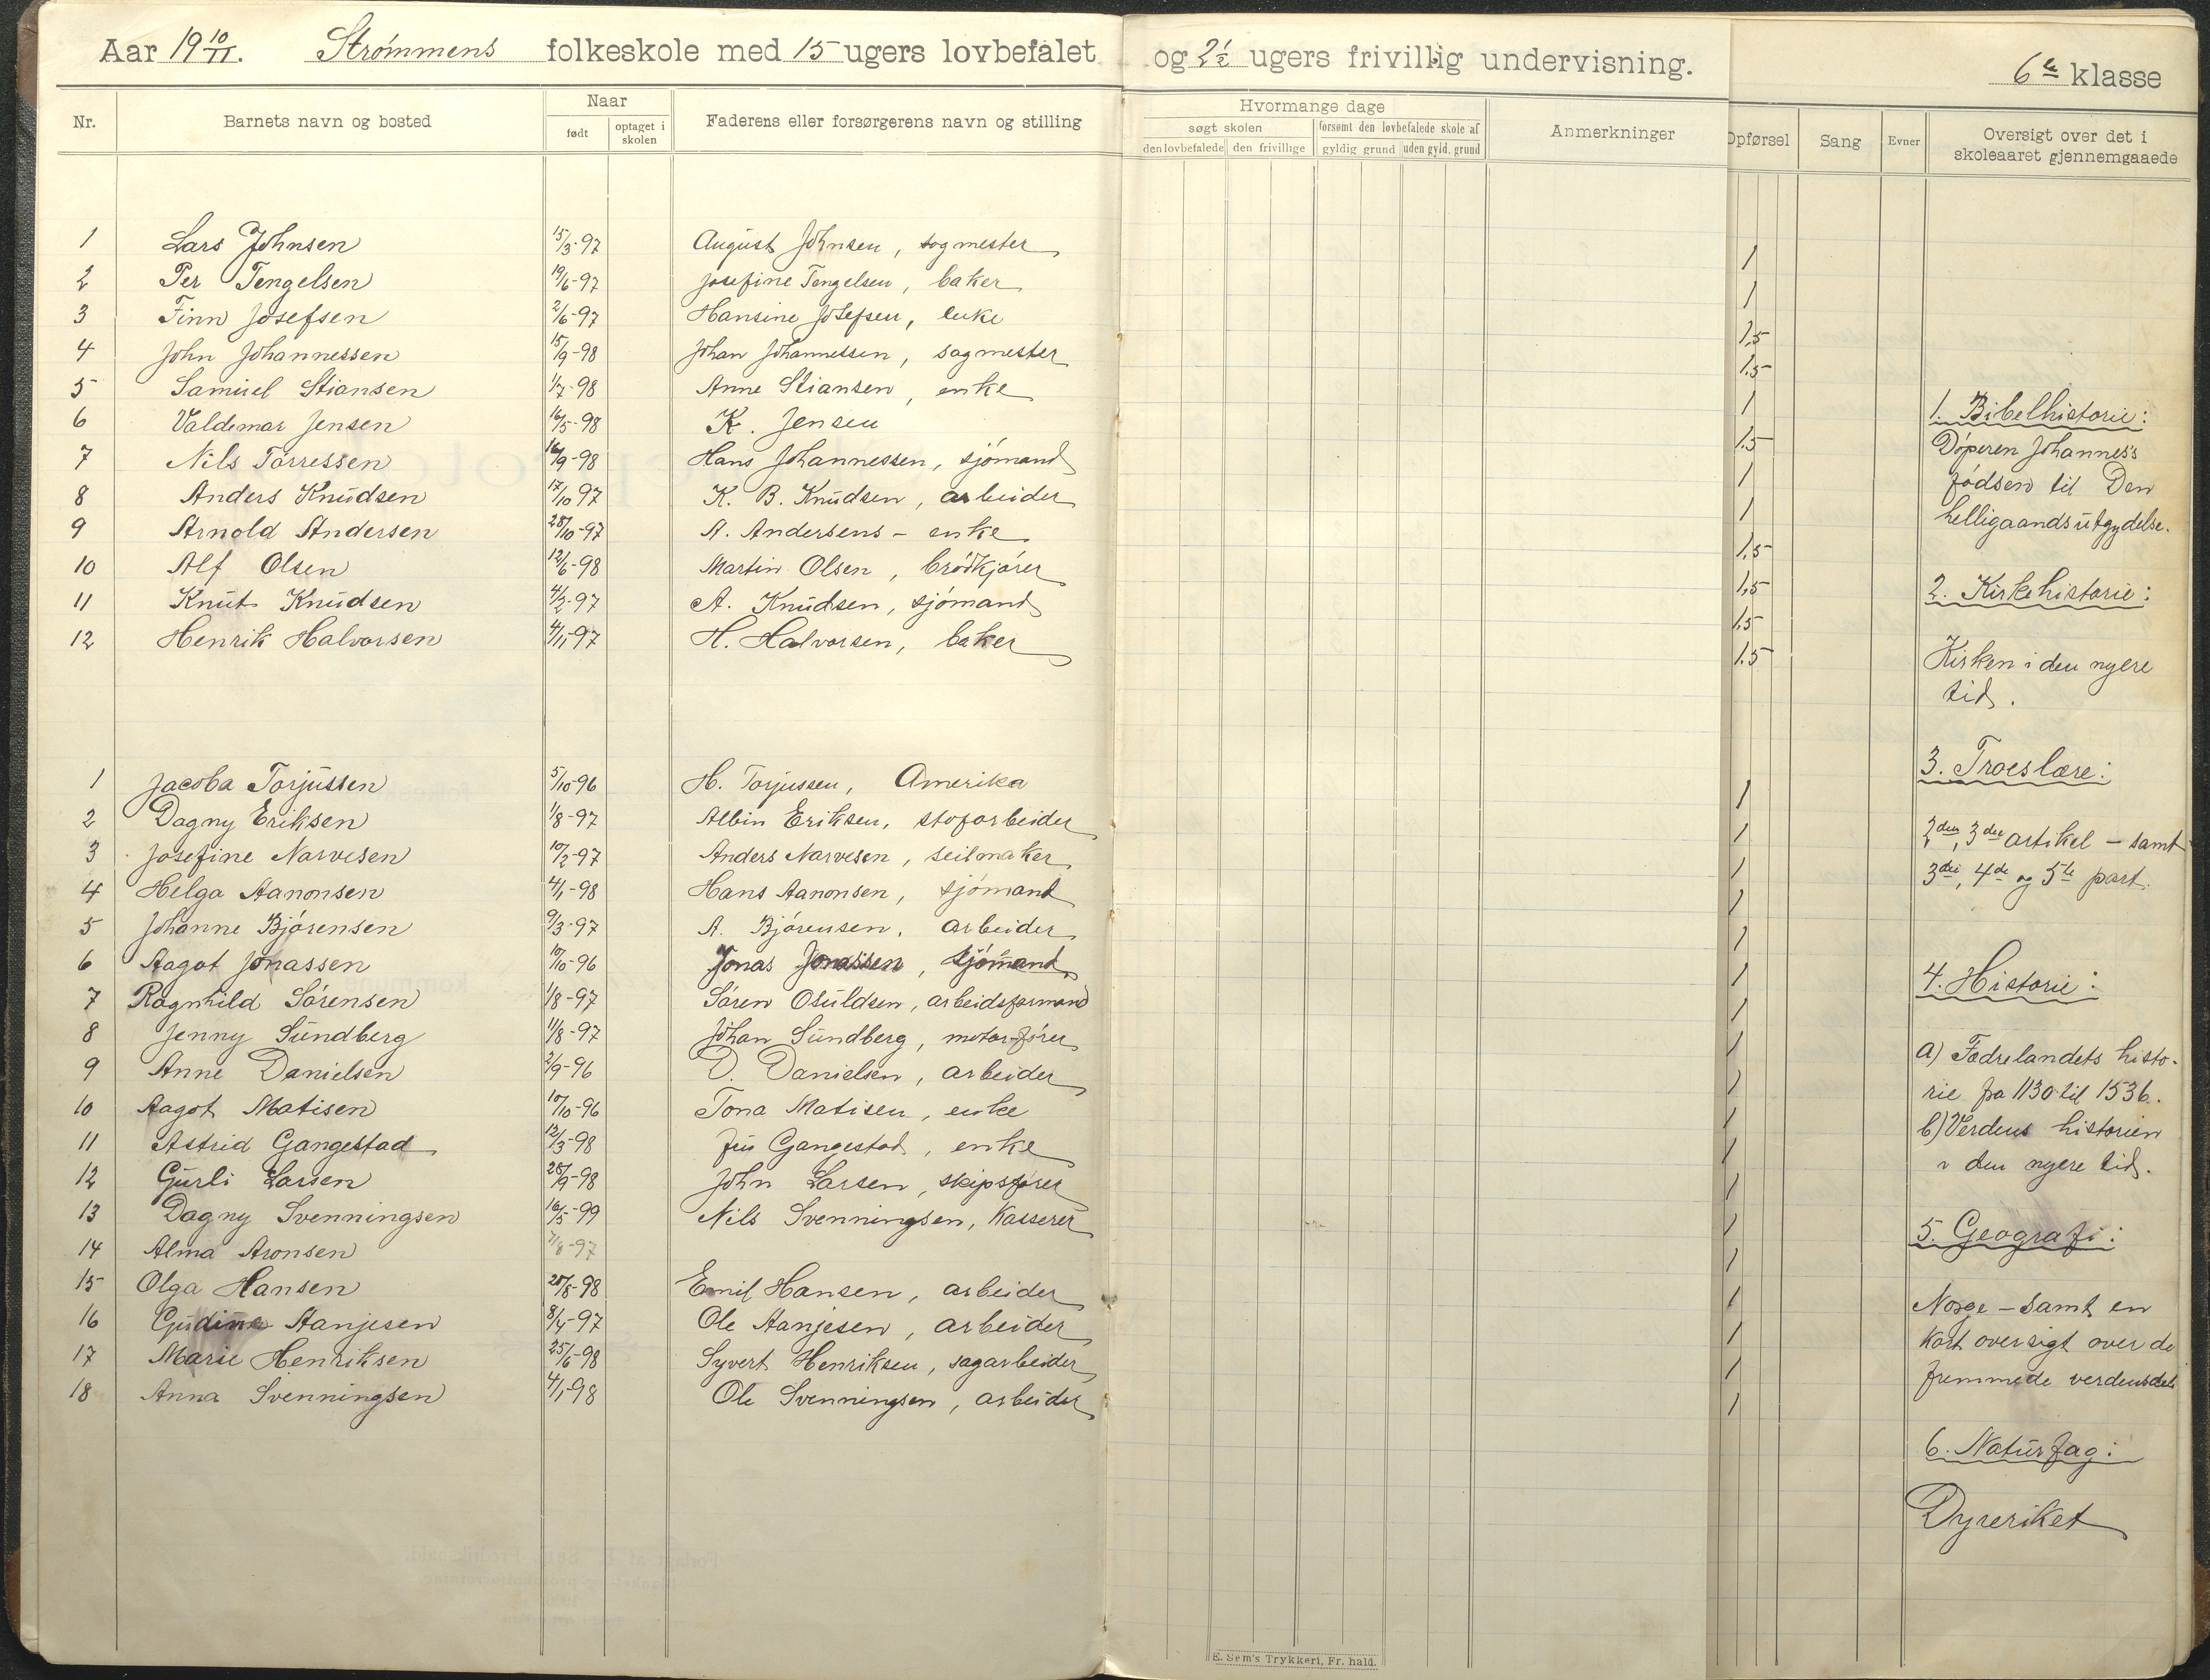 Aar 19 10/11. Strømmens folkeskole med 15 ugers lovbefalet og 2 1/2 ugers frivillig undervisning. 6te klasse
Nr. Barnets navn og bosted Naar født optaget i skolen Faderens eller forsørgerens navn og stilling
Hvormange dage søgt skolen den lovbefalede den frivillige forsømt den lovbefalede skole af gyldig grund uden gyld. grund Anmerkninger
Opførsel Sang Evner Oversigt over det i skoleaaret gjennemgaaede
1 Lars Johnsen 15/3-97 August Johnsen, sogmester 1
2 Per Tengelsen 19/6-97 Josefine Tengelsen, baker 1
3 Finn Josefsen 2/6-97 Hansine Josefsen, enke 1,5
4 John Johannessen 15/9-98 Johan Johannessen, sagmester 1.5
5 Samuel Stiansen 1/7-98 Anne Stiansen, enke 1
6 Valdemar Jensen 16/5-98 K. Jensen 1.5
7 Nils Torressen 16/9-98 Hans Johannessen, sjömand 1
8 Anders Knudsen 17/10 97 K. B. Knudsen, arbeider 1
9 Arnold Andersen 28/10-97 A. Andersens - enke 1,5
10 Alf Olsen 12/6-98 Martin Olsen, brödkjörer 1,5
11 Knut Knudsen 4/2-97 A. Knudsen, sjömand 1.5
12 Henrik Halvorsen 4/11-97 H. Halvorsen, baker 1.5
1 Jacoba Torjussen 5/10-96 H. Torjussen, Amerika 1
2 Dagny Eriksen 1/8-97 Albin Eriksen, stofarbeider 1
3 Josefine Narvesen 10/2-97 Anders Narvesen, seilmaker 1
4 Helga Aanonsen 4/1-98 Hans Aanonsen, sjömand 1
5 Johanne Bjørensen 9/3-97 A. Bjørensen, arbeider 1
6 Aagot Jonassen 10/10-96 Jonas Jonassen, sjömand 1
7 Ragnhild Sörensen 1/8-97 Sören Osuldsen, arbeidsformand 1
8 Jenny Sundberg 11/8-97 Johan Sundberg, motorförer 1
9 Anne Danielsen 2/9-96 D. Danielsen, arbeider 1
10 Aagot Matisen 10/10-96 Tona Matisen, enke 1
11 Astrid Gangestad 12/3-98 Gangestad, enke 1
12 Gurli Larsen 28/9-98 John Larsen, skipsförer 1
13 Dagny Svenningsen 16/5-99 Nils Svenningsen, Kasserer 1
14 Alma Aronsen 7/8-97 1
15 Olga Hansen 28/8-98 Emil Hansen, arbeider 1
16 Gudine Aanjesen 8/4-97 Ole Aanjesen, arbeider 1
17 Marie Henriksen 25/6-98 Syvert Henriksen, sagarbeider 1
18 Anna Svenningsen 4/1-98 Ole Svenningsen, arbeider 1
1. Bibelhistorie:
Döperen Johannes's
födsen til Den
helligaandsutgydelse.
2. Kirkehistorie:
Kirken i den nyere
tid.
3. Troeslære:
2den, 3die artikel - samt
3die, 4de og 5te part.
4. Historie:
a) Fædrelandets histo-
rie fra 1130 til 1536.
b) Verdens historien
i den nyere tid.
5. Geografi:
Norge - samt en
kort oversigt over de
fremmede verdensdele
6. Naturfag:
Dyreriket
E. Sem's Trykkeri, Fr. hald.